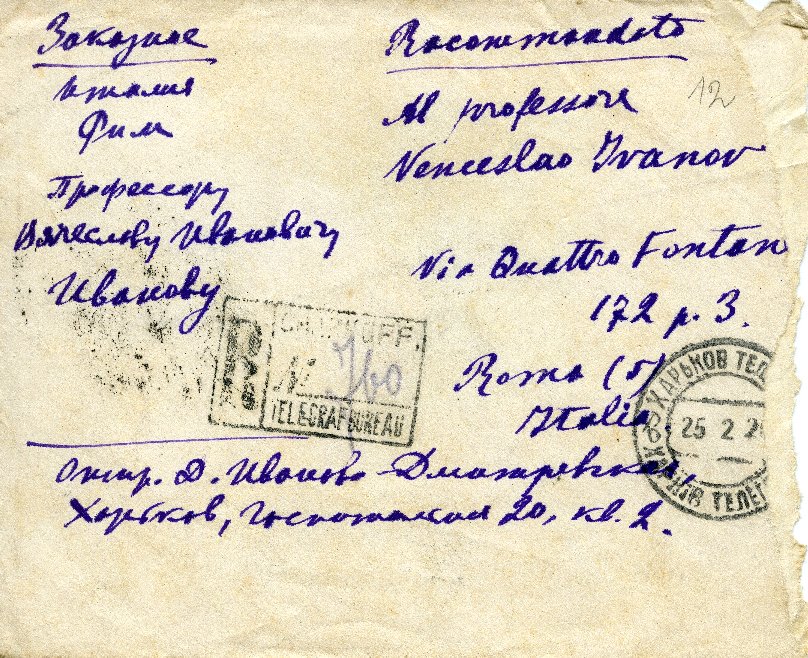 Заказное
Италия
Рим
Профессору
Вячеславу Ивановичу
Иванову
Racommandato
12
Al professore
Venceslao Ivanov
Via Quattro Fontan
172 p. 3.
Roma (5)
Italia
R
CHARKOFF.
N 760
TELEGRAFBUREAU
ХАРЬКОВ ТЕЛ
25 2 2
ТЕЛЕГ
Отпр. Д. Иванов-Дмитревская,
Харьков, 20, кв. 2.